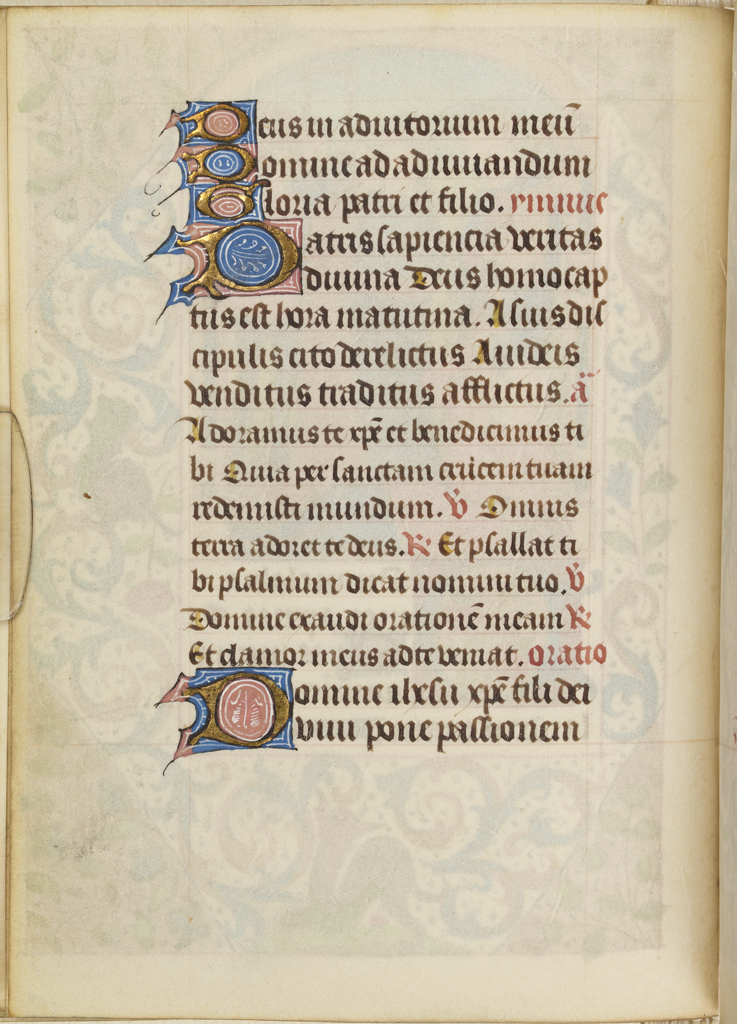 Deus in adiutorium meū
Domine ad adiuuandum
Gloria patri et filio. ymnus
Patris sapiencia veritas
diuina Deus homo cap
tus est hora matutina. A suis dis
cipulis cito derelictus A iudeis
venditus traditus afflictus. ā
Adoramus te xp̄e et benedicimus ti
bi Quia per sanctam crucem tuam
redemisti mundum. ℣ Omnis
terra adoret te deus. ℟ Et psallat ti
bi psalmum dicat nomini tuo. ℣
Domine exaudi orationē meam ℟
Et clamor meus ad te veniat. oratio
Domine ihesu xp̄e fili dei
viui pone passionem